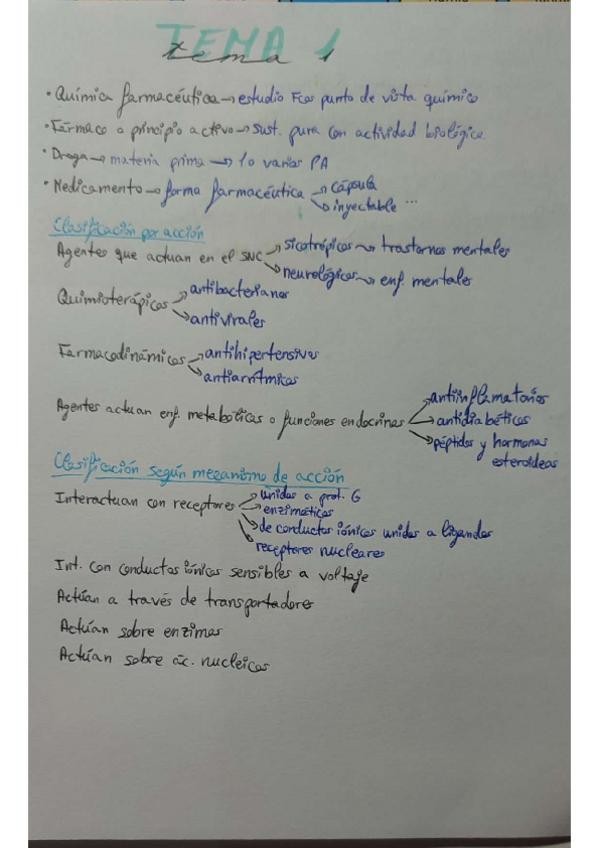 TEMA 1
tema 1
· Química farmacéutica → estudio Fcos punto de vista químico
· Fármaco o principio activo → sust. pura con actividad biológica.
· Droga → materia prima → 1 o varios PA
· Medicamento → forma farmacéutica → cápsula
→ inyectable ...
Clasificación por acción
Agentes que actuan en el SNC → sicotrópicos → trastornos mentales
→ neurológicos → enf. mentales
Quimioterápicos → antibacterianos
→ antivirales
Farmacodinámicos → antihipertensivos
→ antiarrítmicos
Agentes actuan enf. metabólicas o funciones endocrinas → antiinflamatorios
→ antidiabéticos
→ péptidos y hormonas
esteroideas
Clasificación según mecanismo de acción
Interactuan con receptores → unidos a prot. G
→ enzimáticos
→ de conductos iónicos unidos a ligandos
→ receptores nucleares
Int. con conductos iónicos sensibles a voltaje
Actúan a través de transportadores
Actúan sobre enzimas
Actúan sobre ác. nucleicos